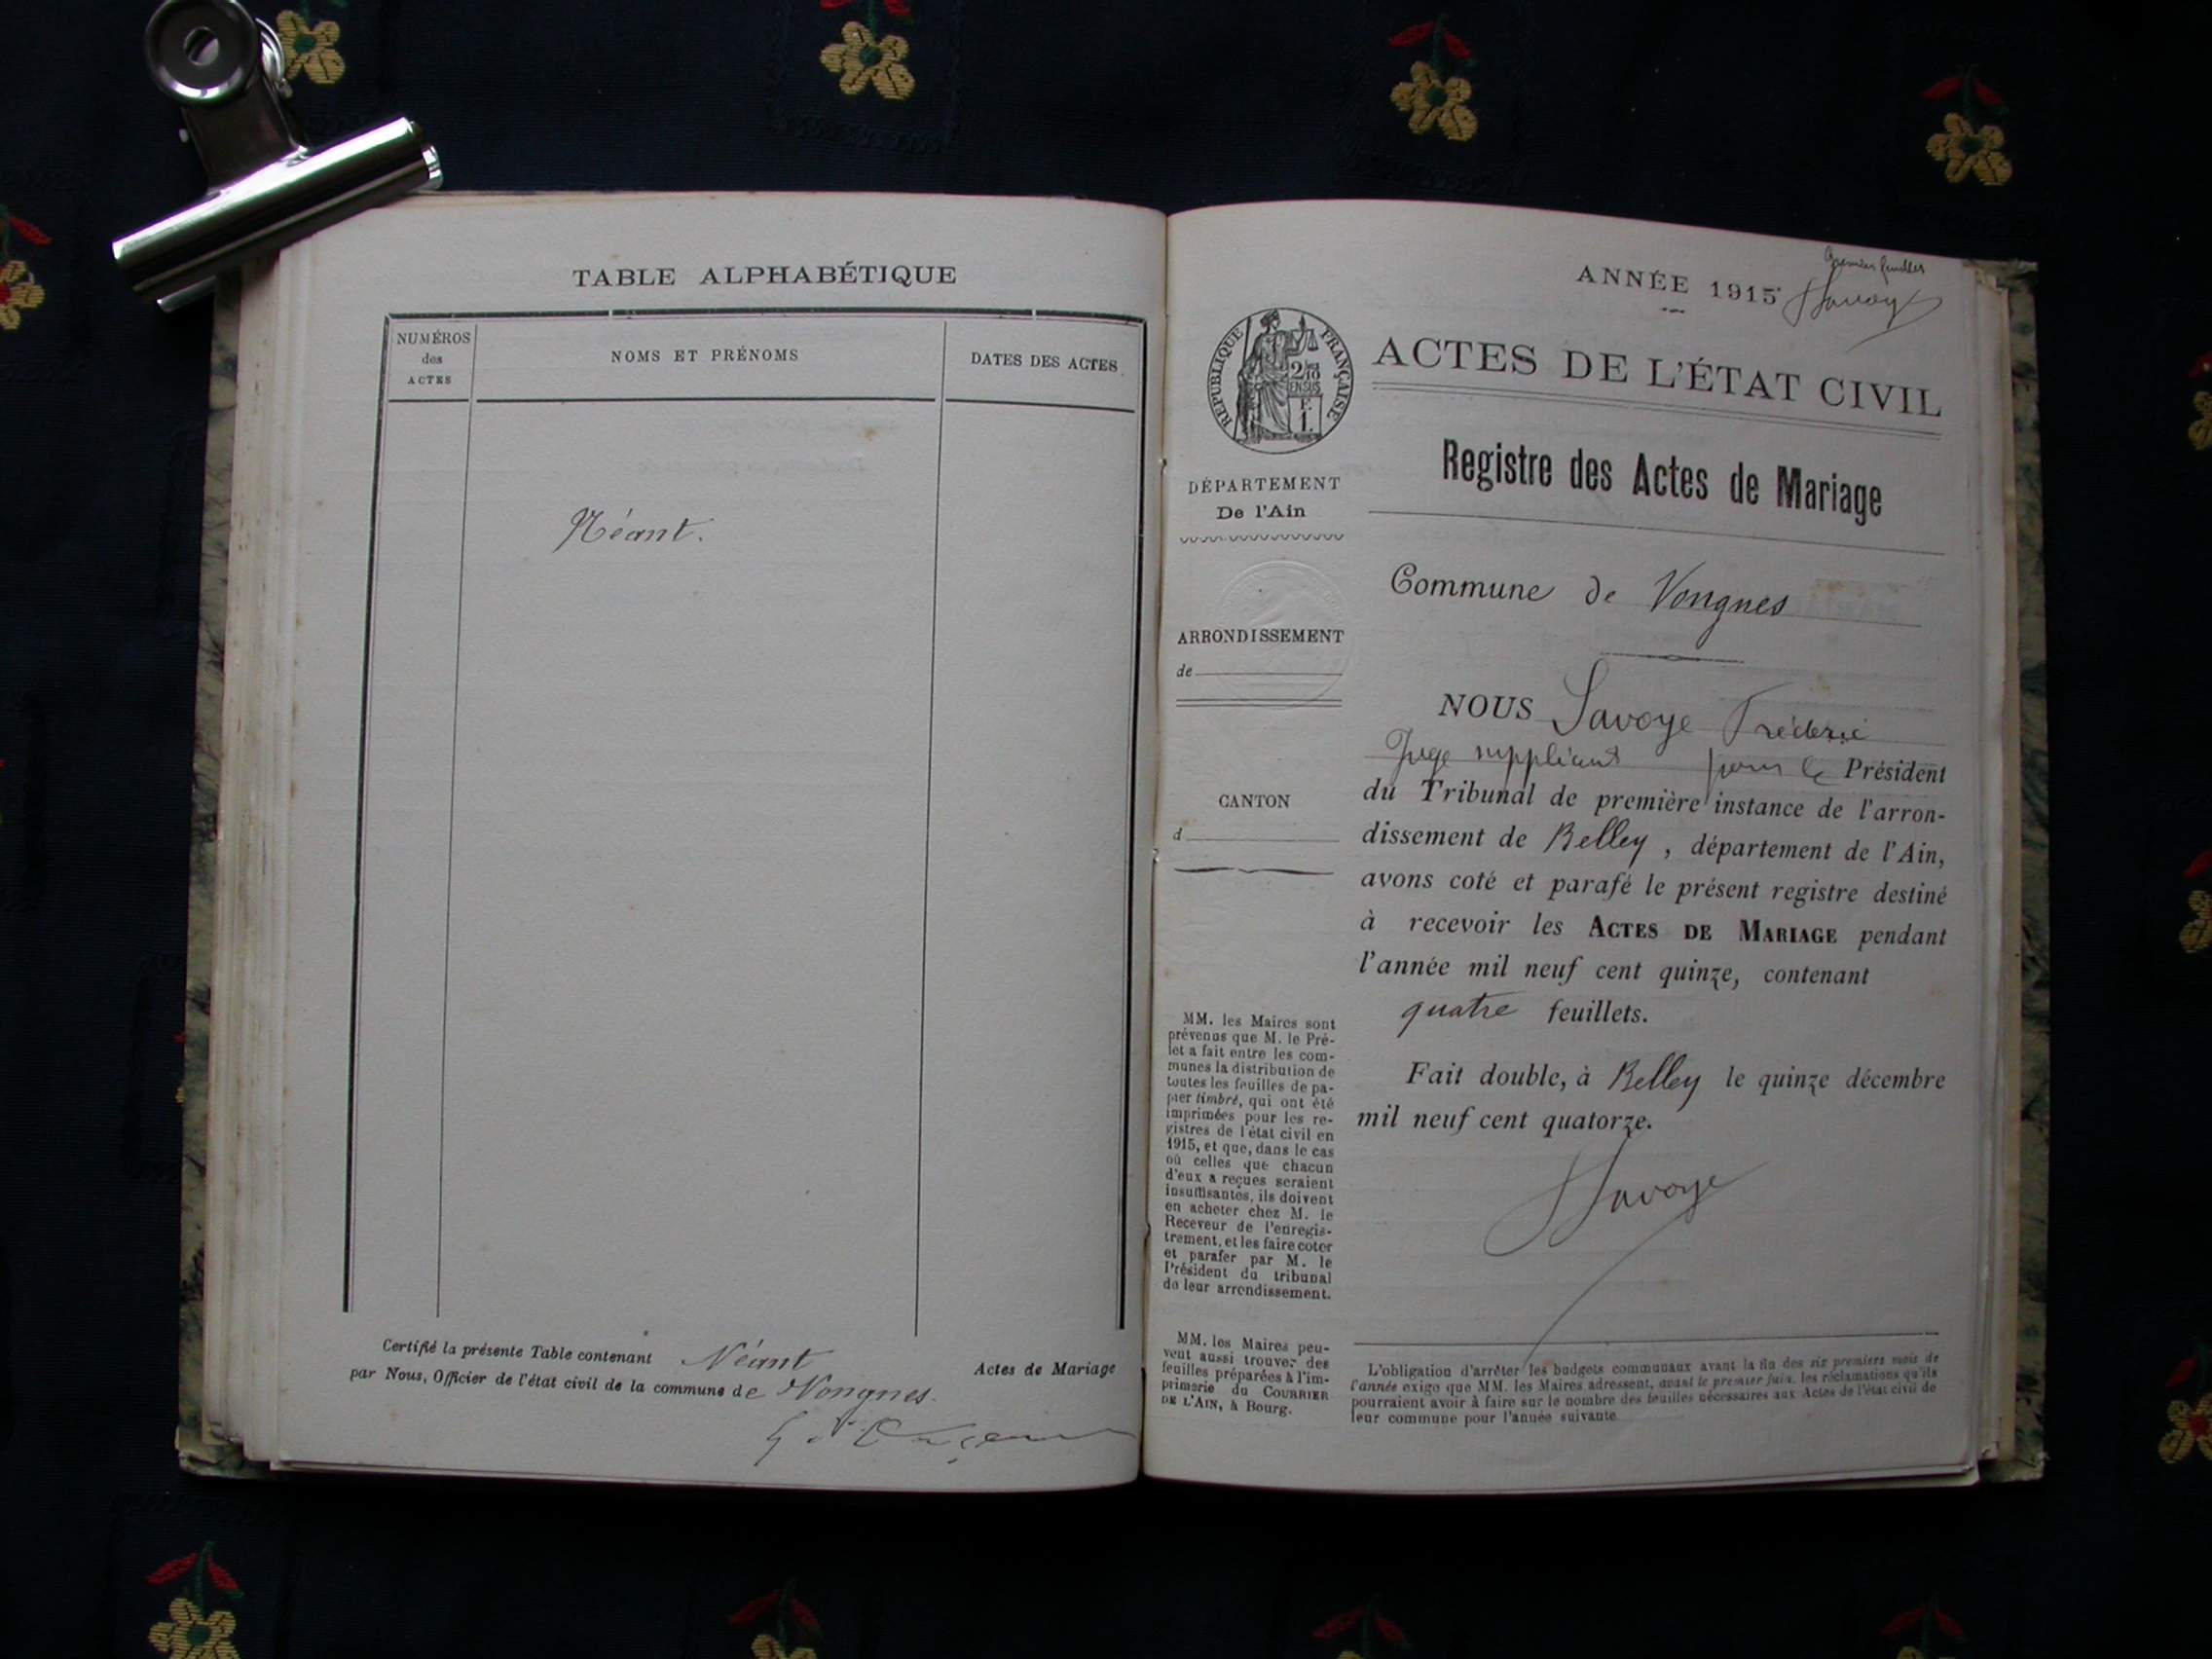 TABLE ALPHABÉTIQUE
NUMÉROS
des
ACTES
NOMS ET PRÉNOMS
DATES DES ACTES
Néant.
Certifié la présente Table contenant Néant Actes de Mariage
par Nous, Officier de l'état civil de la commune de Vongnes.
Premier feuillet
Savoye
ANNÉE 1915
RÉPUBLIQUE FRANÇAISE
ACTES DE L'ÉTAT CIVIL
Registre des Actes de Mariage
DÉPARTEMENT
De l'Ain
Commune de Vongnes
ARRONDISSEMENT
de
CANTON
d
NOUS Savoye Fréderic
Juge suppléant pour le Président
du Tribunal de première instance de l'arron-
dissement de Belley, département de l'Ain,
avons coté et parafé le présent registre destiné
à recevoir les ACTES DE MARIAGE pendant
l'année mil neuf cent quinze, contenant
quatre feuillets.
Fait double, à Belley le quinze décembre
mil neuf cent quatorze.
Savoye
MM. les Maires sont
prévenus que M. le Pré-
fet a fait entre les com-
munes la distribution de
toutes les feuilles de pa-
pier timbré, qui ont été
imprimées pour les re-
gistres de l'état civil en
1915, et que, dans le cas
où celles que chacun
d'eux a reçues seraient
insuffisantes, ils doivent
en acheter chez M. le
Receveur de l'enregis-
trement, et les faire coter
et parafer par M. le
Président du tribunal
de leur arrondissement.
MM. les Maires peu-
vent aussi trouver des
feuilles préparées à l'im-
primerie du COURRIER
DE L'AIN, à Bourg.
L'obligation d'arrêter les budgets communaux avant la fin des six premiers mois de
l'année exige que MM. les Maires adressent, avant le premier juin, les réclamations qu'ils
pourraient avoir à faire sur le nombre des feuilles nécessaires aux Actes de l'état civil de
leur commune pour l'année suivante.